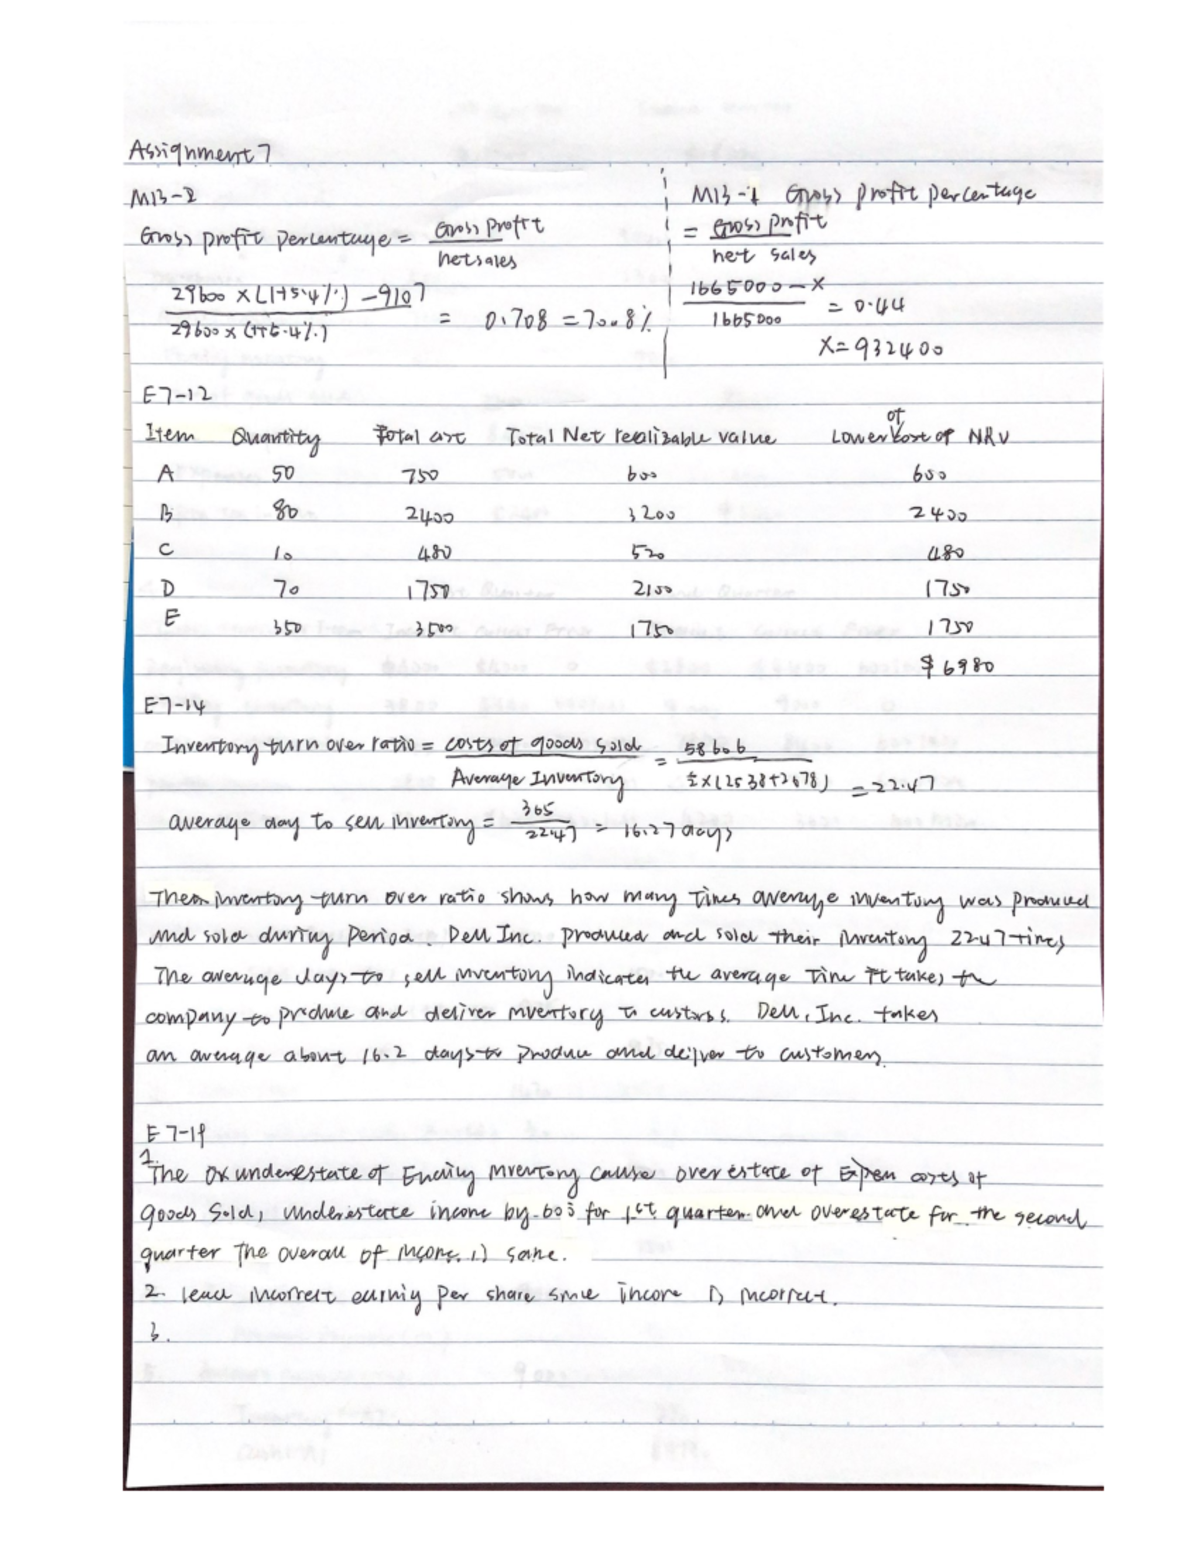 Assignment 7
M13-2
Gross profit percentage = Gross profit
net sales
29600 x (1+5.4%) - 9107
29600 x (1+5.4%)
= 0.708 = 70.8%
M13-1 Gross profit percentage
= Gross profit
net sales
1665000 - X
1665000
= 0.44
X = 932400
E7-12
Item Quantity Total cost Total Net realizable value Lower of cost or NRV
A 50 750 600 600
B 80 2400 3200 2400
C 10 480 520 480
D 70 1750 2100 1750
E 350 3500 1750 1750
$ 6980
E7-14
Inventory turn over ratio = costs of goods sold = 58606
Average Inventory ½x(2538+2678) = 22.47
average day to sell inventory = 365 = 16.27 days
22.47
The inventory turn over ratio shows how many times average inventory was produced
and sold during period. Dell Inc. produced and sold their inventory 22.47 times
The average days to sell inventory indicates the average time it takes the
company to produce and deliver inventory to Dell, Inc. takes
an average about 16.2 days to produce and deliver to customers.
E7-19
1. The understate of Ending inventory cause overestate of costs of
goods sold, understate income by for 1st quarter and overestate for the second
quarter The overall of income is same.
2. lead incorrect earning per share since income is incorrect.
3.